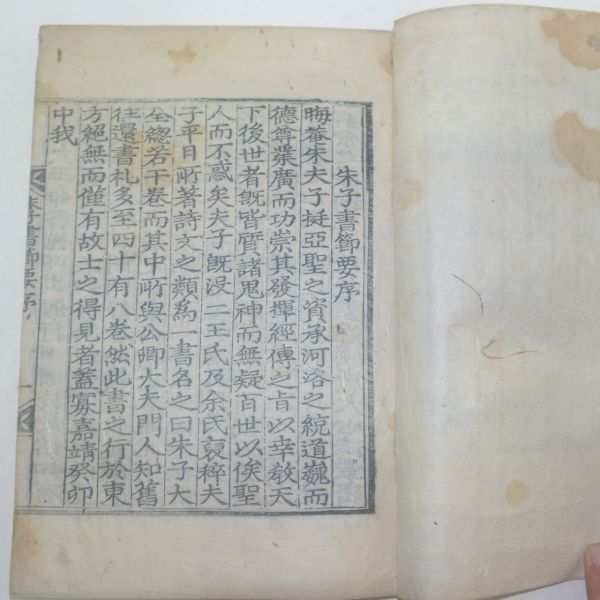 朱子書節要序
晦菴朱夫子挺亞聖之資承河洛之統道巍而
德尊業廣而功崇其發揮經傳之旨以幸敎天
下後世者旣皆質諸鬼神而無疑百世以俟聖
人而不惑矣夫子旣沒二王氏及余氏裒稡夫
子平日所著詩文之類爲一書名之曰朱子大
全總若干卷而其中所與公卿大夫門人知舊
往還書札多至四十有八卷然此書之行於東
方絕無而僅有故士之得見者蓋寡嘉靖癸卯
中我
朱子書節要序
一